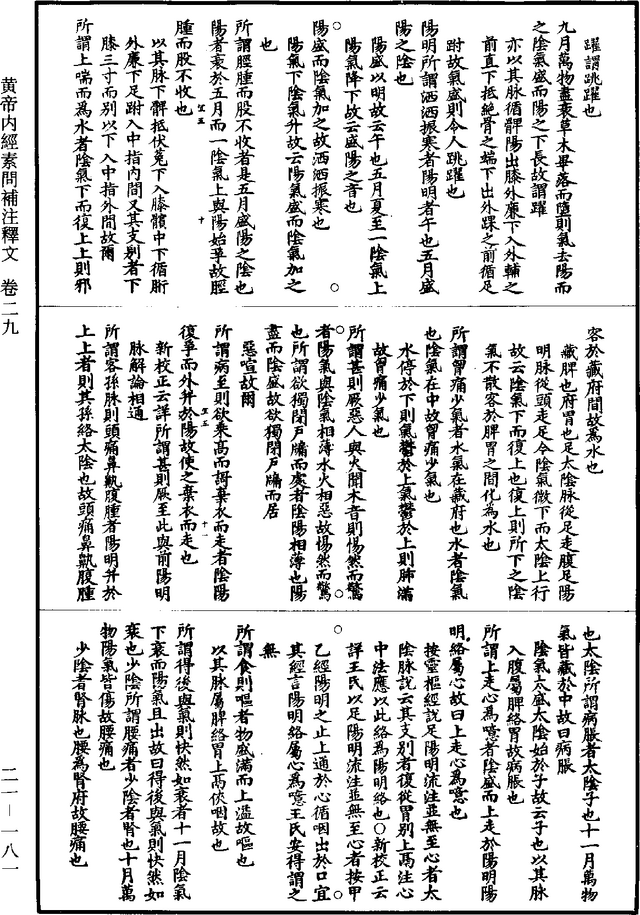 黄帝内經素問補注釋文　卷二九
二一—一八一
躍謂跳躍也
九月萬物盡衰草木畢落而墮則氣去陽而
之陰氣盛而陽之下長故謂躍
亦以其脉循髀陽出膝外廉下入外輔之
前直下抵絶骨之端下出外踝之前循足
跗故氣盛則令人跳躍也
陽明所謂洒洒振寒者陽明者午也五月盛
陽之陰也
陽盛以明故云午也五月夏至一陰氣上
陽氣降下故云盛陽之陰也
陽盛而陰氣加之故洒洒振寒也
陽氣下陰氣升故云陽氣盛而陰氣加之
也
所謂脛腫而股不收者是五月盛陽之陰也
陽者衰於五月而一陰氣上與陽始爭故脛
腫而股不收也
以其脉下髀抵伏菟下入膝髕中下循䯒
外廉下足跗入中指内間又其支别者下
膝三寸而别以下入中指外間故爾
所謂上喘而爲水者陰氣下而復上上則邪
客於藏府間故爲水也
藏脾也府胃也足太陰脉從足走腹足陽
明脉從頭走足今陰氣微下而太陰上行
故云陰氣下而復上也復上則所下之陰
氣不散客於脾胃之間化為水也
所謂胷痛少氣者水氣在藏府也水者陰氣
也陰氣在中故胷痛少氣也
水停於下則氣鬱於上氣鬱於上則肺滿
故胷痛少氣也
所謂甚則厥惡人與火聞木音則惕然而驚
者陽氣與陰氣相薄水火相惡故惕然而驚
也所謂欲獨閉戸牖而處者陰陽相薄也陽
盡而陰盛故欲獨閉戸牖而居
惡喧故爾
所謂病至則欲乘高而歌棄衣而走者陰陽
復爭而外并於陽故使之棄衣而走也
新校正云詳所謂甚則厥至此與前陽明
脉解論相通
所謂客孫脉則頭痛鼻鼽腹腫者陽明并於
上上者則其孫絡太陰也故頭痛鼻鼽腹腫
也太陰所謂病脹者太陰子也十一月萬物
氣皆藏於中故曰病脹
陰氣太盛太陰始於子故云子也以其脉
入腹屬脾絡胃故病脹也
所謂上走心為噫者陰盛而上走於陽明陽
明絡屬心故曰上走心為噫也
按靈樞經說足陽明流注並無至心者太
陰脉說云其支别者復從胃别上鬲注心
中法應以此絡為陽明絡也○新校正云
詳王氏以足陽明流注並無至心者按甲
乙經陽明之正上通於心循咽出於口宜
其經言陽明絡屬心為噫王氏安得謂之
無
所謂食則嘔者物盛滿而上溢故嘔也
以其脉屬脾絡胃上鬲俠咽故也
所謂得後與氣則快然如衰者十一月陰氣
下衰而陽氣且出故曰得後與氣則快然如
衰也少陰所謂腰痛者少陰者腎也十月萬
物陽氣皆傷故腰痛也
少陰者腎脉也腰為腎府故腰痛也